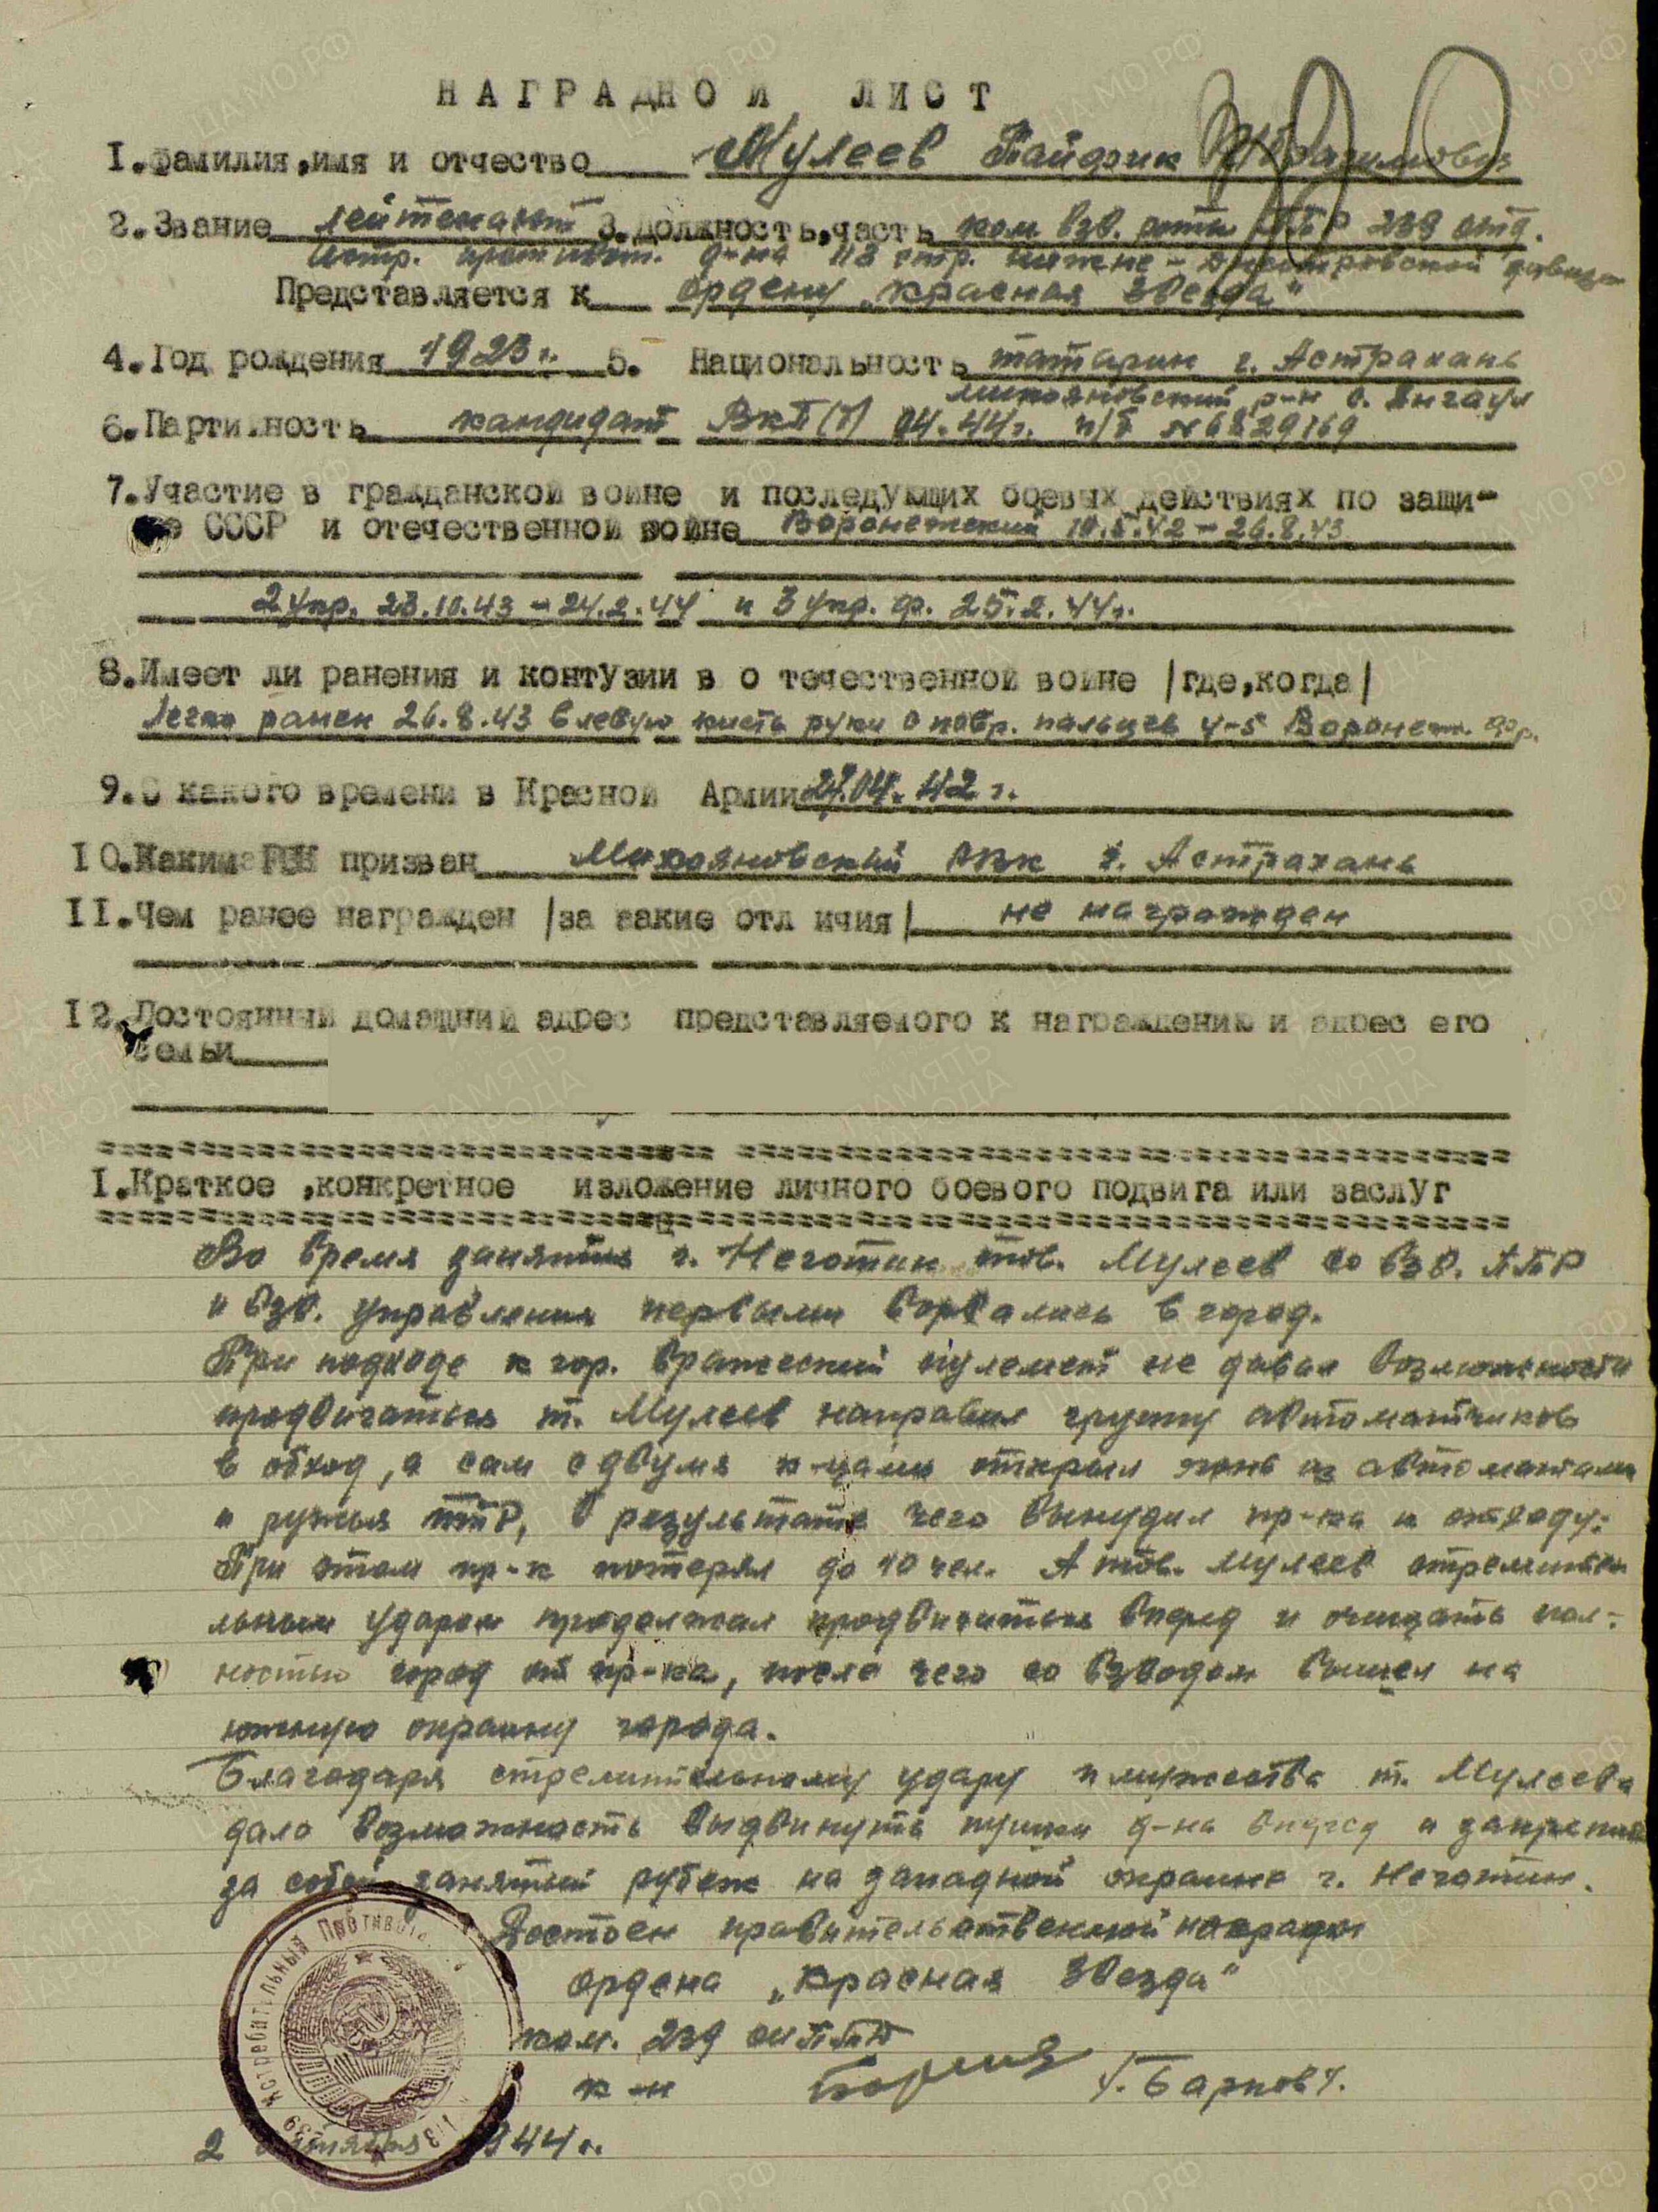 НАГРАДНОЙ ЛИСТ
I.Фамилия,имя и отчество Мулеев Тайфик Ибрагимович
2.Звание лейтенант 3.Должность,часть ком взв. роты ПТР 239 отд.
истр. противот. д-на 113 стр. Нижне-Днестровской дивизии
Представляется к ордену „Красная Звезда"
4.Год рождения 1923 г. 5. Национальность татарин г. Астрахань
Микояновский р-н с. Янгаул
6.Партийность кандидат ВКП(б) 04.44г. п/б №6829769
7.Участие в гражданской войне и последующих боевых действиях по защи-
те СССР и отечественной войне Воронежский 10.5.42-26.8.43
2 Укр. 23.10.43-24.2.44 и 3 Укр. ф. 25.2.44г.
8.Имеет ли ранения и контузии в о течественной войне /где,когда/
Легко ранен 26.8.43 в левую кисть руки с повр. пальцев 4-5 Воронеж. фр.
9.С какого времени в Красной Армии 27.04.42 г.
I0.Каким РВК призван Микояновский РВК г. Астрахань
II.Чем ранее награжден /за какие отл ичия/ не награжден
I2.Постоянный домашний адрес представляемого к награждению и адрес его
семьи
I.Краткое ,конкретное изложение личного боевого подвига или заслуг
Во время занятия г. Неготин тов. Мулеев со взв. ПТР
и взв. управления первыми ворвались в город.
При подходе к гор. вражеский пулемет не давал возможности
продвигаться т. Мулеев направил группу автоматчиков
в обход, а сам с двумя к-цами открыл огонь из автоматами
и ружья ПТР, в результате чего вынудил пр-ка к отходу.
При этом пр-к потерял до 10 чел. А тов. Мулеев стремите-
льным ударом продолжал продвигаться вперед и очищать пол-
ностью город от пр-ка, после чего со взводом вышел на
южную окраину города.
Благодаря стремительному удару и мужества т. Мулеева
дало возможность выдвинуть пушки д-на вперед и закрепить
за собой занятый рубеж на западной окраине г. Неготин.
Достоен правительственной награды
ордена „Красная Звезда"
ком. 239 оиптд
к-н /Г. Барков/.
2 октября 1944 г.
239 Истребительный Противота 113